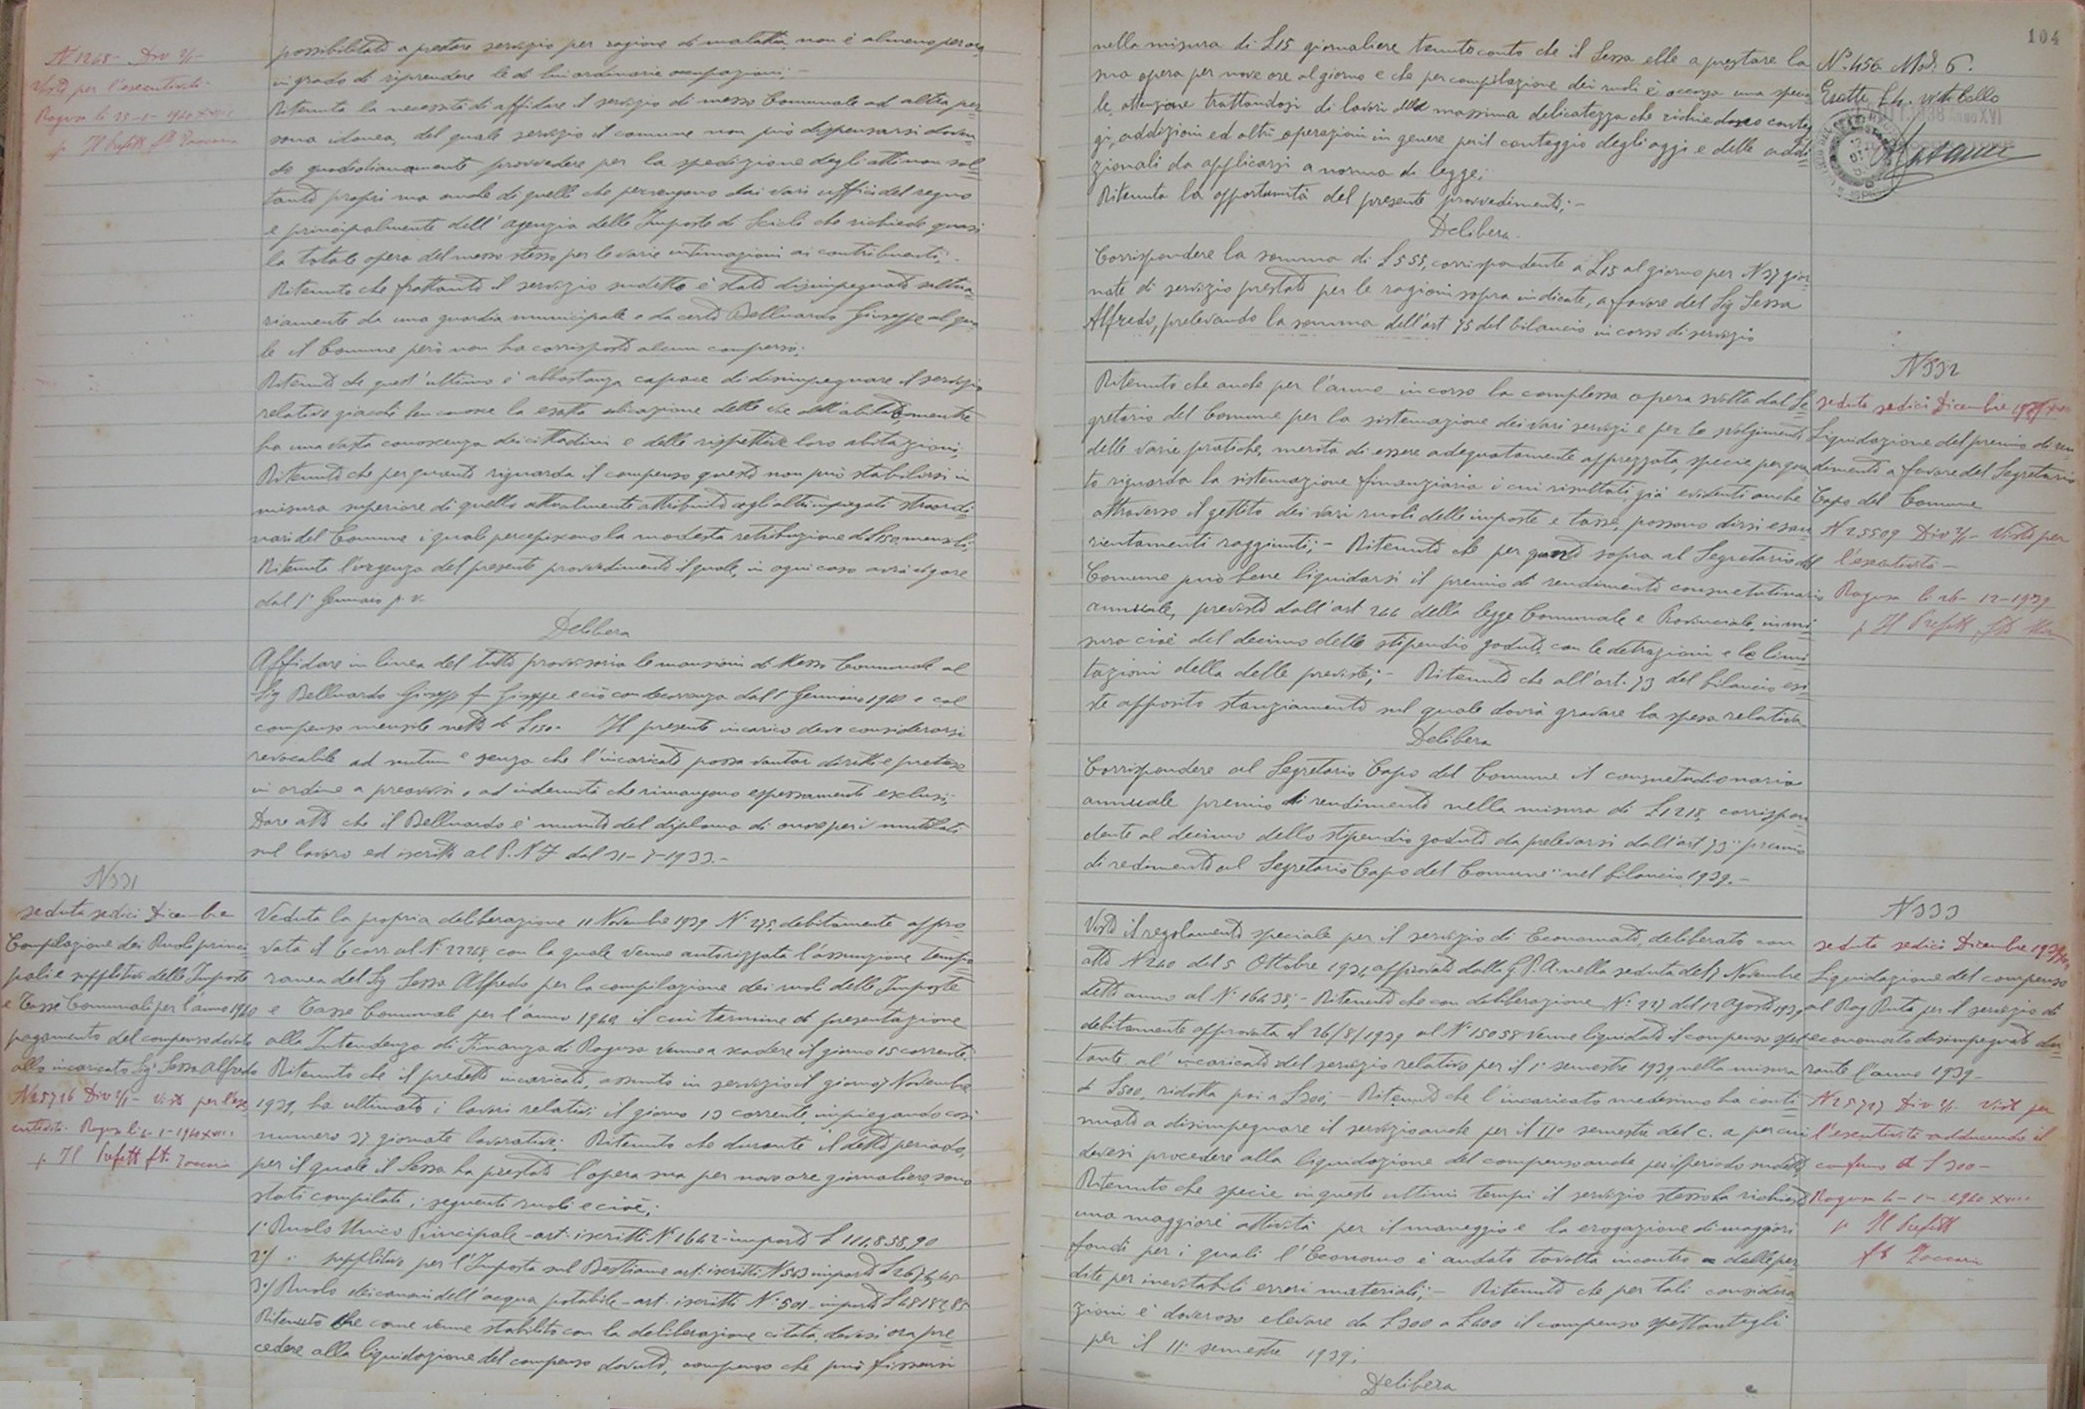 N 1248 - Div 2/1 -
Visto per l'esecutività -
Ragusa li 25-1-1940 XVIII
p. Il Prefetto ft Zoccaria
possibilitato a prestare servizio per ragione di malattia non è almeno per ora
in grado di riprendere le di lui ordinarie occupazioni; -
Ritenuta la necessità di affidare il servizio di messo Comunale ad altra per
sona idonea, del quale servizio il comune non può dispensarsi doven
do quotidianamente provvedere per la spedizione degli atti non sol
tanto propri ma anche di quelli che pervengono dai vari uffici del regno
e principalmente dell'agenzia delle Imposte di Scicli che richiede quasi
la totale opera del messo stesso per le varie intimazioni ai contribuenti; -
Ritenuto che frattanto il servizio sudetto è stato disimpegnato saltua
riamente da una guardia municipale e da certo Belluardo Giuseppe al qua
le il Comune però non ha corrisposto alcun compenso;
Ritenuto che quest'ultimo è abbastanza capace di disimpegnare il servizio
relativo giacchè ben conosce la esatta ubicazione delle vie dell'abitato, mentre
ha una vasta conoscenza dei cittadini e delle rispettive loro abitazioni;
Ritenuto che per quanto riguarda il compenso questo non può stabilirsi in
misura superiore di quello attualmente attribuito agli altri impiegati straordi
nari del Comune i quali percepiscono la modesta retribuzione di L 150 mensili;
Ritenuta l'urgenza del presente provvedimento il quale, in ogni caso avrà vigore
dal 1° Gennaio p. v.
Delibera
Affidare in linea del tutto provvisoria le mansioni di Messo Comunale al
Sig Belluardo Giuseppe fu Giuseppe e ciò con decorrenza dal 1 Gennaio 1940 e col
compenso mensile netto di L 150 - Il presente incarico deve considerarsi
revocabile ad nutum e senza che l'incaricato possa vantar diritti e pretese
in ordine a preavvisi, ad indennità che rimangono espressamente esclusi;
Dare atto che il Belluardo è munito del diploma di onore per i mutilati
sul lavoro ed iscritto al P.N.F dal 31-7-1933. -
N 331
seduta sedici Dicembre
Compilazione dei Ruoli princi
pali e suppletivi delle Imposte
e Tasse Comunali per l'anno 1940
pagamento del compenso dovuto
allo incaricato Sig Sessa Alfredo
N 25726 Div 2/1 - Visto per l'ese
cutività - Ragusa li 6-1-1940 XVIII
p. Il Prefetto ft. Zoccaria
Veduta la propria deliberazione 11 Novembre 1939 N° 275, debitamente appro
vata il 6 corr. al N° 22768, con la quale venne autorizzata l'assunzione tempo
ranea del Sig Sessa Alfredo per la compilazione dei ruoli delle Imposte
e Tasse Comunali per l'anno 1940 il cui termine di presentazione
alla Intendenza di Finanza di Ragusa venne a scadere il giorno 15 corrente;
Ritenuto che il predetto incaricato, assunto in servizio il giorno 7 Novembre
1939, ha ultimato i lavori relativi il giorno 13 corrente, impiegando così
numero 37 giornate lavorative; Ritenuto che durante il detto periodo,
per il quale il Sessa ha prestato l'opera sua per nove ore giornaliere, sono
stati compilati i seguenti ruoli e cioè;
1° Ruolo Unico Principale - art. iscritti N° 1642 - importo L 111,858,90
2°/ " suppletivo per l'Imposta sul Bestiame art. iscritti N 543 importo L 2676,45
3°/ Ruolo dei canoni dell'acqua potabile - art. iscritti N° 501 - importo L 48182,85
Ritenuto che come venne stabilito con la deliberazione citata, devesi ora pro
cedere alla liquidazione del compenso dovuto, compenso che può fissarsi
104
nella misura di L 15 giornaliere tenuto conto che il Sessa ebbe a prestare la
sua opera per nove ore al giorno e che per compilazione dei ruoli è occorsa una specia
le attenzione trattandosi di lavori della massima delicatezza che richiedono conteg
gi, addizioni ed altri operazioni in genere per il conteggio degli aggi e delle addi
zionali da applicarsi a norma di legge;
Ritenuta la opportunità del presente provvedimento; -
Delibera -
Corrispondere la somma di L 555, corrispondente a L 15 al giorno per N 37 gior
nate di servizio prestato per le ragioni sopra indicate, a favore del Sig Sessa
Alfredo, prelevando la somma dell'art 75 del bilancio in corso di servizio
N° 456 Mod. 6.
Esatte
Ritenuto che anche per l'anno in corso la complessa opera svolta dal Se
gretario del Comune per la sistemazione dei vari servizi e per lo svolgimento
delle varie pratiche, merita di essere adeguatamente apprezzata specie per quan
to riguarda la sistemazione finanziaria i cui risultati, già evidenti anche
attraverso il gettito dei vari ruoli delle imposte e tasse, possono dirsi esau
rientemente raggiunti; - Ritenuto che per quanto sopra al Segretario del
Comune può bene liquidarsi il premio di rendimento consuetudinario
annuale, previsto dall'art 244 della legge Comunale e Provinciale, in mi
sura cioè del decimo dello stipendio goduto, con le detrazioni e le limi
tazioni della delle previste; - Ritenuto che all'art. 73 del bilancio esi
ste apposito stanziamento sul quale dovrà gravare la spesa relativa
Delibera
Corrispondere al Segretario Capo del Comune il consuetudionario
annuale premio di rendimento nella misura di L 1218 corrispon
dente al decimo dello stipendio goduto da prelevarsi dall'art 73 "premio
di redimento al Segretario Capo del Comune" nel bilancio 1939. -
N 332
seduta sedici Dicembre 1939 XVIII
Liquidazione del premio di ren
dimento a favore del Segretario
Capo del Comune
N 25509 Div 2/1 - Visto per
l'esecutività -
Ragusa li 26-12-1939
p. Il Prefetto
Visto il regolamento speciale per il servizio di Economato, deliberato con
atto N 240 del 5 Ottobre 1934, approvato dalla G.P.A. nella seduta del 7 Novembre
detto anno al N° 16438; - Ritenuto che con deliberazione N° 227 del 12 agosto 1939
debitamente approvata il 26/8/1939 al N° 15058 venne liquidato il compenso spet
tante al'incaricato del servizio relativo per il 1° semestre 1939, nella misura
di L 500, ridotta poi a L 300; - Ritenuto che l'incaricato medesimo ha conti
nuato a disimpegnare il servizio anche per il II° semestre del c. a per cui
devesi procedere alla liquidazione del compenso anche per il periodo sudetto
Ritenuto che specie in questi ultimi tempi il servizio stesso ha richiesto
una maggiore attività per il maneggio e la erogazione di maggiori
fondi per i quali l'Economo è andato tavolta incontro a delle per
dite per inevitabili errori materiali; - Ritenuto che per tali considera
zioni è doveroso elevare da L 300 a L 400 il compenso spettantegli
per il II° semestre 1939;
Delibera
N 333
seduta sedici Dicembre 1939
Liquidazione del compenso
al Rag Ruta per il servizio di
economato disimpegnato du
rante l'anno 1939 -
N 25727 Div 2/1 - Visto per
l'esecutività riducendo il
compenso a L 300 -
Ragusa li -1- 1940 XVIII
p. Il Prefetto
ft Zoccaria